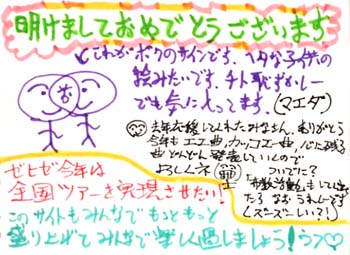 明けましておめでとうございます
これがボクのサインです。ヘタな子供の
絵みたいです。チト恥ずかしー
でも気に入ってます。(マエダ)
去年応援してくれたみなさん、ありがとう
今年もエエ曲、カッコエエ曲、心に残る
曲どんどん発表していくので
おしみネ
ついでに?
も
たら なおうれしーです
(スムーズ〜しい?!)
ゼヒゼヒ今年は
全国ツアーを実現させたい!
このサイトもみんなでもっともっと
盛り上げてみんなで楽しく過しましょう!